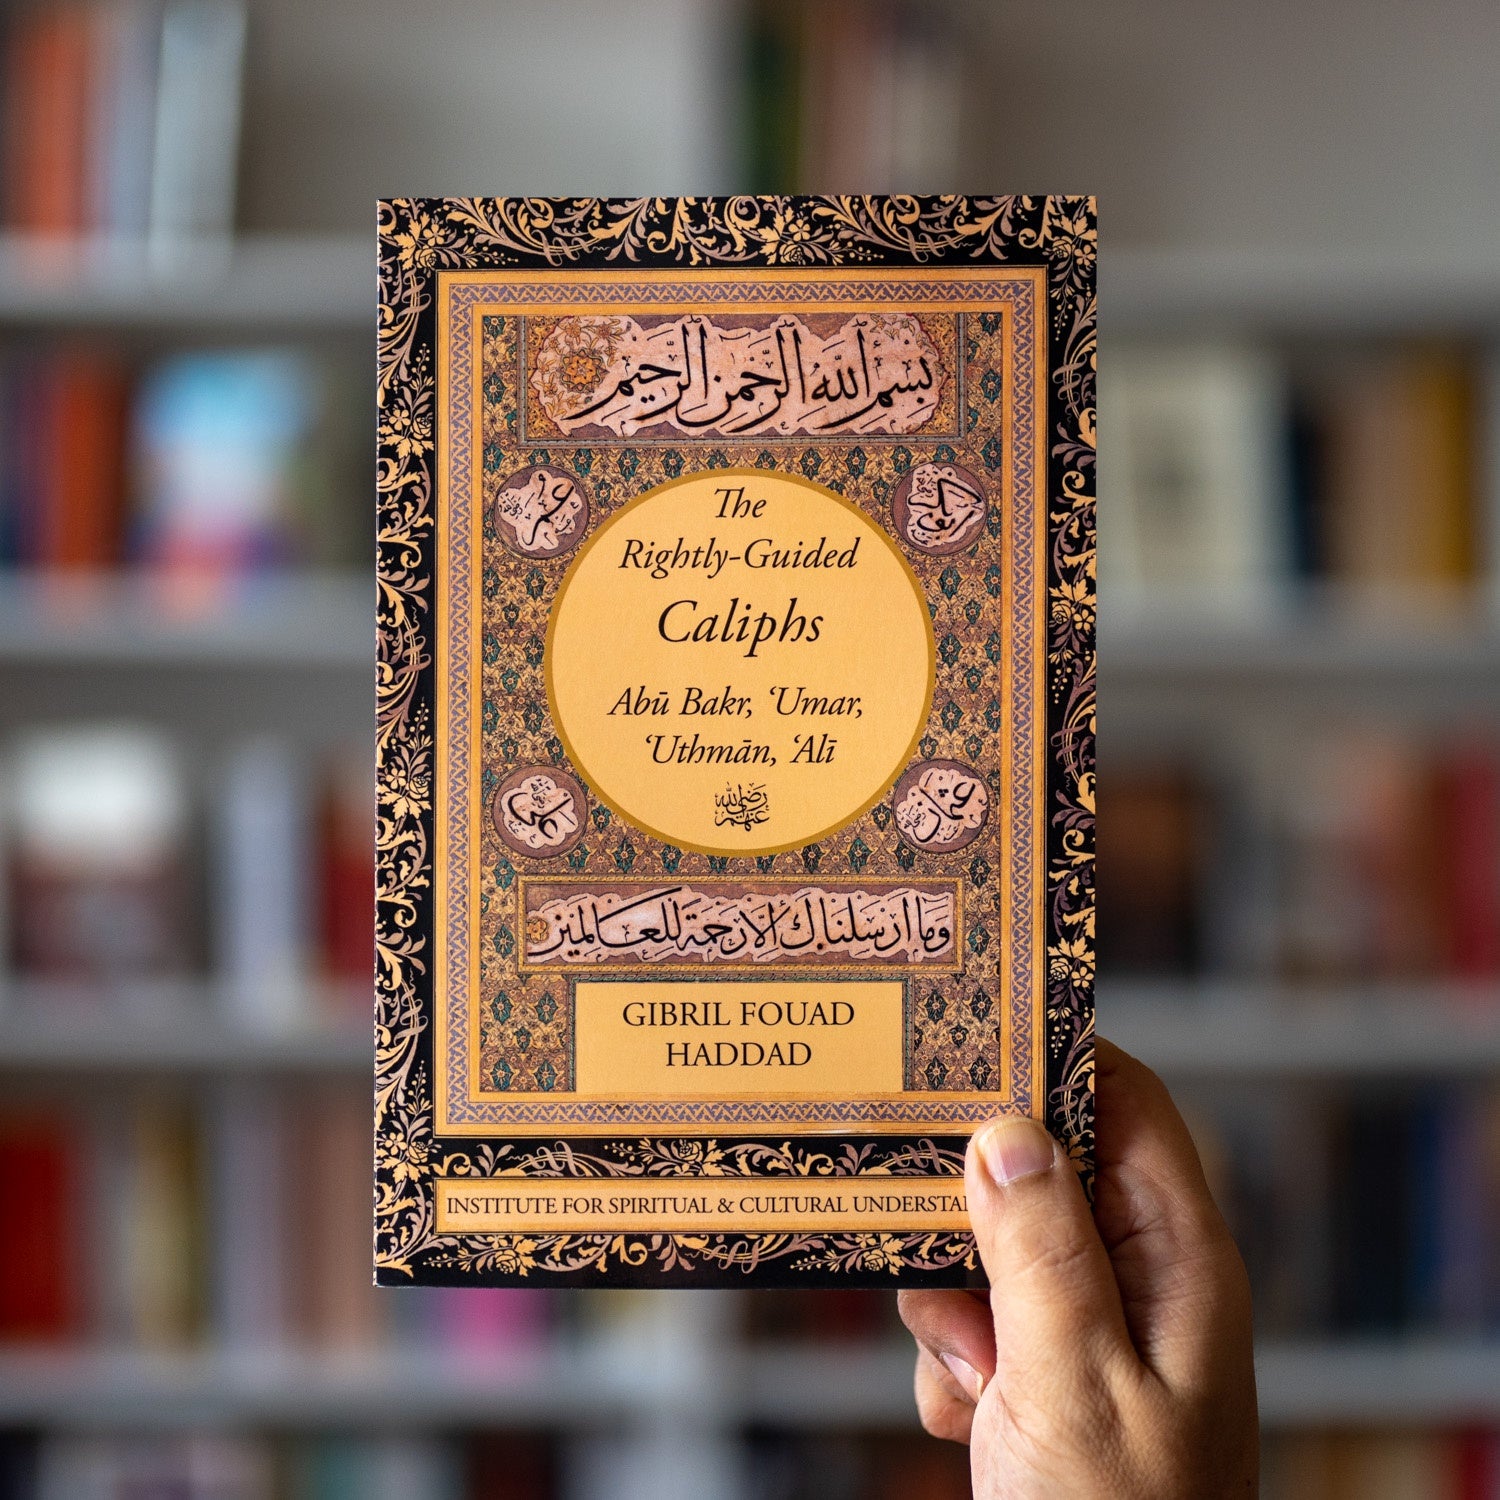 بسم الله الرحمن الرحيم
عمر
ابوبكر
The
Rightly-Guided
Caliphs
Abū Bakr, ʻUmar,
ʻUthmān, ʻAlī
رضي الله
عنهم
علي
عثمان
وَمَا أَرْسَلْنَاكَ إِلَّا رَحْمَةً لِلْعَالَمِينَ
GIBRIL FOUAD
HADDAD
INSTITUTE FOR SPIRITUAL & CULTURAL